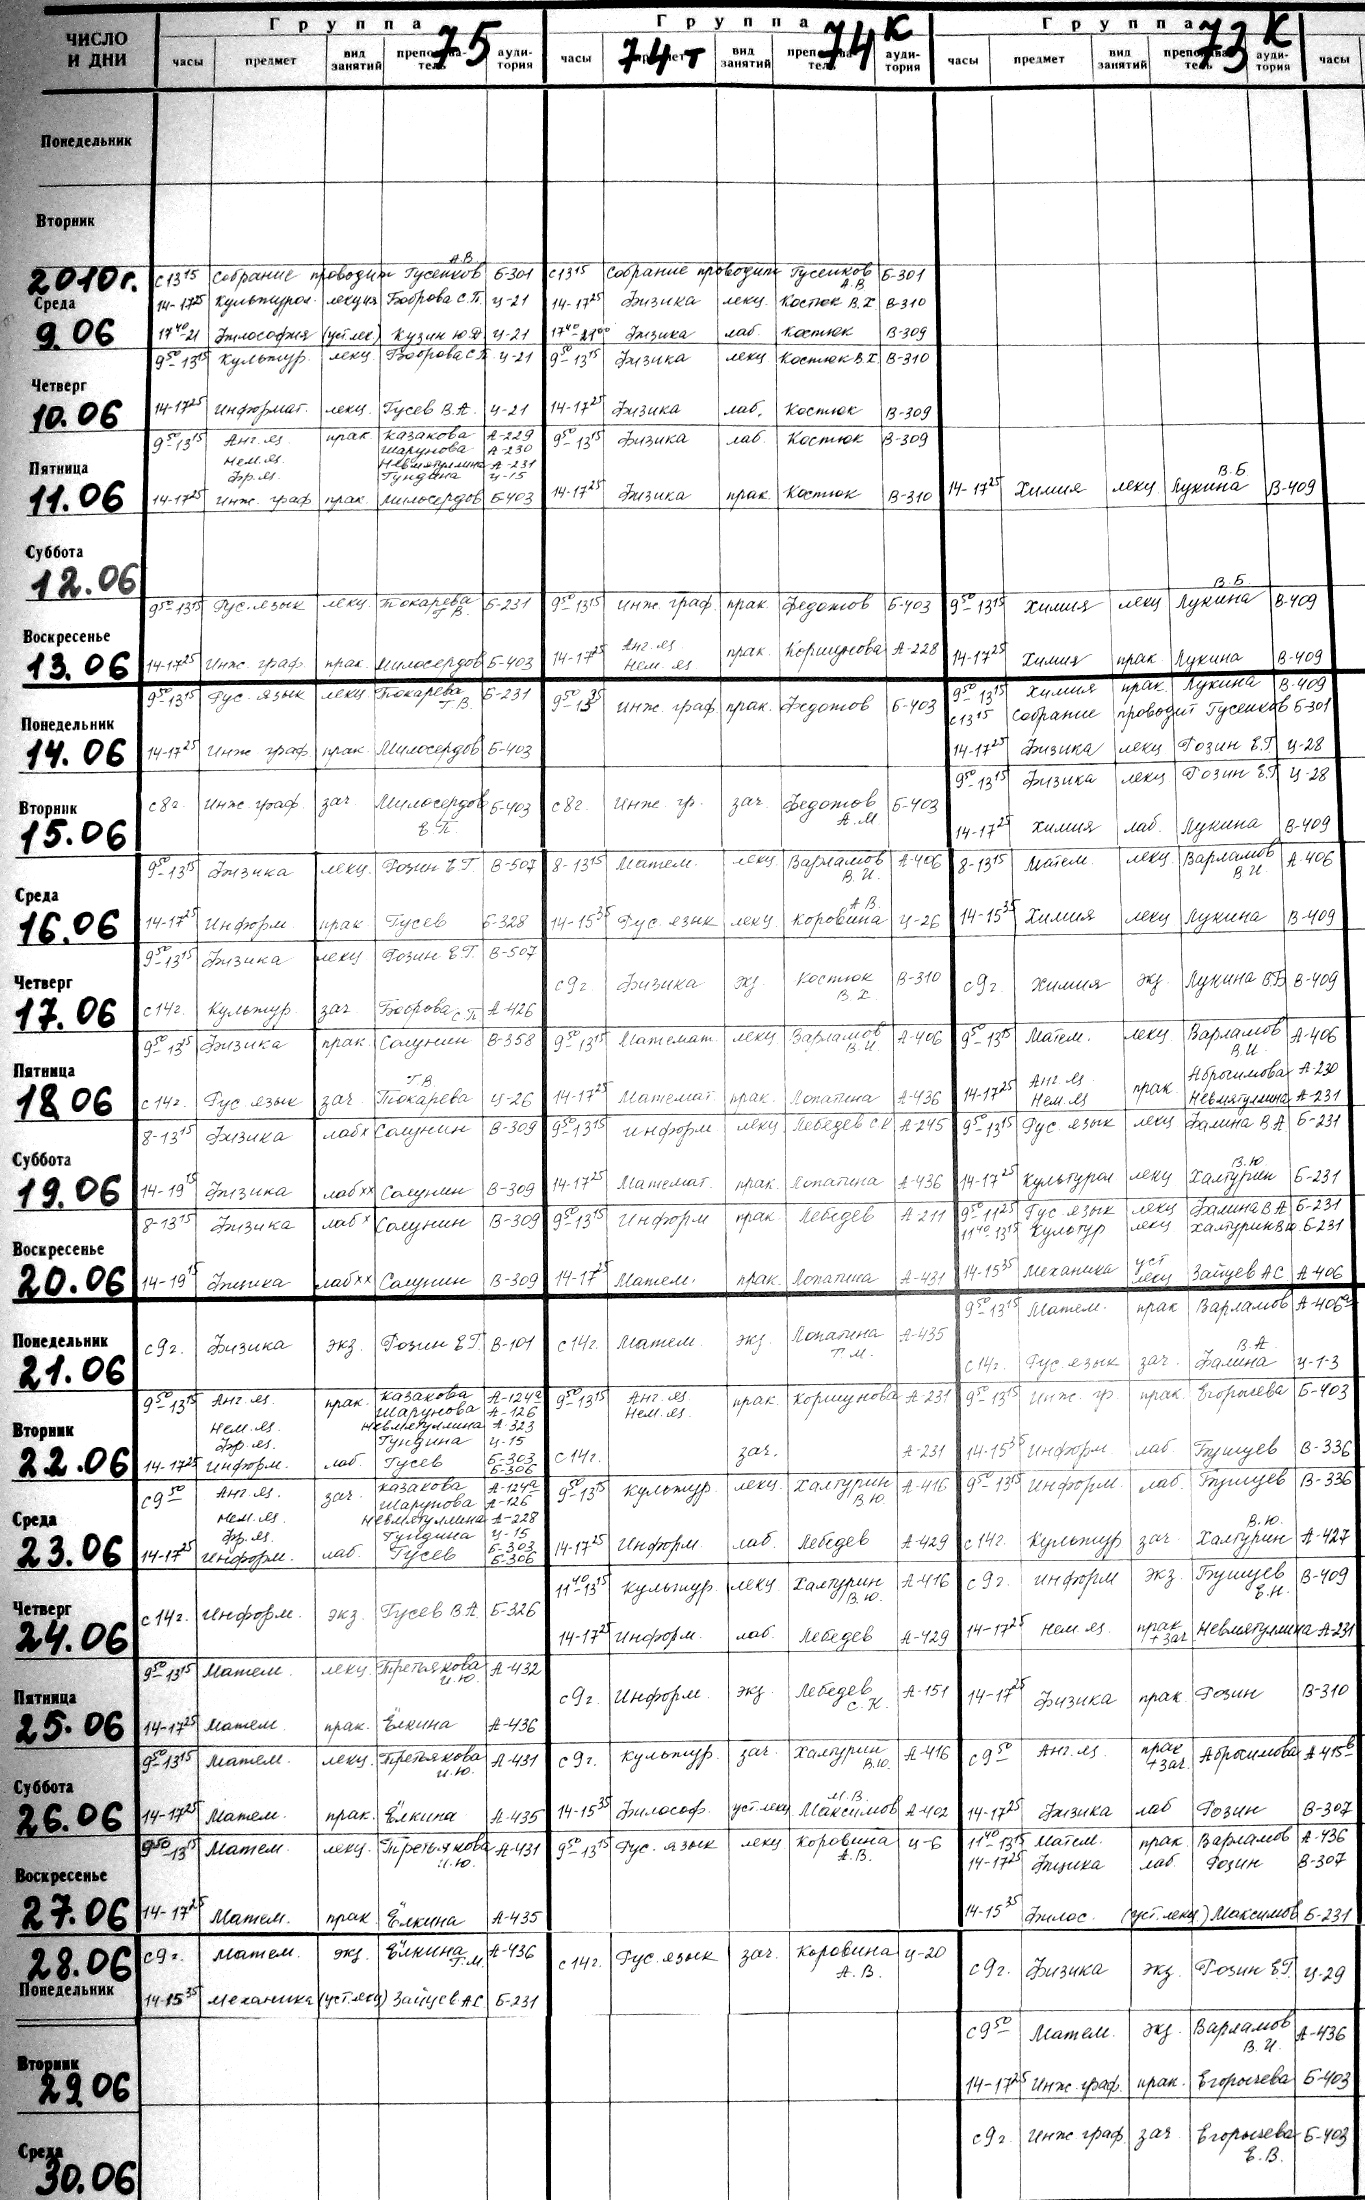 ЧИСЛО И ДНИ
Группа 75
Группа 74т 74К
Группа 73К
часы предмет вид занятий преподаватель аудитория
часы предмет вид занятий преподаватель аудитория
часы предмет вид занятий преподаватель аудитория
часы
Понедельник
Вторник
2010г.
Среда
9.06
с13 15 Собрание проводит Гусенков А.В. Б-301
14-17 25 Культурол. лекция Боброва С.П. Ц-21
17 40-21 Философия (уст.лек.) Кузин Ю.Д. Ц-21
с13 15 Собрание проводит Гусенков А.В. Б-301
14-17 25 Физика лекц. Костюк В.Х В-310
17 40-21 00 Физика лаб. Костюк В-309
Четверг
10.06
9 50-13 15 Культур. лекц Боброва С.П. Ц-21
14-17 25 Информат. лекц. Гусев В.А. Ц-21
9 50-13 15 Физика лекц Костюк В.Х. В-310
14-17 25 Физика лаб. Костюк В-309
Пятница
11.06
9 50-13 15 Анг.яз. прак. Казакова А-229
Шарунова А-230
Нем.яз. Невмятуллина А-231
Фр.яз. Гундина Ц-15
14-17 25 Инж. граф прак. Милосердов Б-403
9 50-13 15 Физика лаб. Костюк В-309
14-17 25 Физика прак. Костюк В-310
14-17 25 Химия лекц Лукина В.Б. В-409
Суббота
12.06
Воскресенье
13.06
9 50-13 15 Рус.язык лекц. Токарева Г.В. Б-231
14-17 25 Инж. граф. прак. Милосердов Б-403
9 50-13 15 Инж. граф. прак. Федотов Б-403
14-17 25 Анг.яз Нем.яз прак. Коршунова А-228
9 50-13 15 Химия лекц Лукина В.Б. В-409
14-17 25 Химия прак Лукина В-409
Понедельник
14.06
9 50-13 15 Рус. язык лекц Токарева Г.В. Б-231
14-17 25 Инж граф прак. Милосердов Б-403
9 50-13 35 Инж. граф. прак. Федотов Б-403
9 50-13 15 Химия прак. Лукина В-409
с13 15 Собрание проводит Гусенков Б-301
14-17 25 Физика лекц Розин Е.Г. Ц-28
Вторник
15.06
с8г. Инж. граф. зач. Милосердов Е.П. Б-403
с8г. Инж. гр. зач. Федотов А.М Б-403
9 50-13 15 Физика лекц Розин Е.Г Ц-28
14-17 25 Химия лаб. Лукина В-409
Среда
16.06
9 50-13 15 Физика лекц. Розин Е.Г. В-507
14-17 25 Информ. прак Гусев Б-328
8-13 15 Матем. лекц Варламов В.И. А-406
14-15 35 Рус. язык лекц. Коровина А.В. Ц-26
8-13 15 Матем. лекц. Варламов В.И. А-406
14-15 35 Химия лекц Лукина В-409
Четверг
17.06
9 50-13 15 Физика лекц Розин Е.Г. В-507
с14г. Культур. зач. Боброва С.П. А-426
с9г. Физика экз. Костюк В.Х. В-310
с9г. Химия экз. Лукина В.Б В-409
Пятница
18.06
9 50-13 15 Физика прак. Солунин В-358
с14г. Рус язык зач. Токарева Г.В. Ц-26
9 50-13 15 Математ. лекц Варламов В.И. А-406
14-17 25 Математ. прак. Лопатина А-436
9 50-13 15 Матем. лекц. Варламов В.И. А-406
14-17 25 Анг.яз. Нем.яз прак Аброчимова А-230
Невмятуллина А-231
Суббота
19.06
8-13 15 Физика лаб х Солунин В-309
14-19 15 Физика лаб хх Солунин В-309
9 50-13 15 Информ лекц Лебедев С.К А-245
14-17 25 Математ. прак. Лопатина А-436
9 50-13 15 Рус. язык лекц Фалина В.А Б-231
14-17 25 Культурол лекц Халтурин В.Ю Б-231
Воскресенье
20.06
8-13 15 Физика лаб х Солунин В-309
14-19 15 Физика лаб хх Солунин В-309
9 50-13 15 Информ прак. Лебедев А-211
14-17 25 Матем. прак. Лопатина А-431
9 50-11 25 Рус язык лекц Фалина В.А Б-231
11 40-13 15 Культур лекц Халтурин В.Ю. Б-231
14-15 35 Механика уст лекц Зайцев А.С А-406
Понедельник
21.06
с9г. Физика экз. Розин Е.Г. В-101
с14г. Матем. экз. Лопатина Т.М. А-435
9 50-13 15 Матем. прак Варламов А-406а
с14г. Рус.язык зач. Фалина В.А. Ц-1-3
Вторник
22.06
9 50-13 15 Анг.яз. прак. Казакова А-124а
Шарунова А-126
Нем.яз. Невмятуллина А-323
Фр.яз. Гундина Ц-15
14-17 25 Информ. лаб. Гусев Б-303 Б-306
9 50-13 15 Анг.яз Нем.яз. прак. Коршунова А-231
с14г. зач. А-231
9 50-13 15 Инж. гр. прак. Егорычева Б-403
14-15 35 Информ. лаб Пушцев В-336
Среда
23.06
с9 50 Анг.яз. зач. Казакова А-124а
Шарунова А-126
Нем.яз. Невмятуллина А-228
Фр.яз. Гундина Ц-15
14-17 25 Информ. лаб. Гусев Б-303 Б-306
9 50-13 15 Культур. лекц. Халтурин В.Ю. А-416
14-17 25 Информ. лаб. Лебедев А-429
9 50-13 15 Информ. лаб. В-336
с14г. Культур зач. Халтурин В.Ю. А-427
Четверг
24.06
с14г. Информ. экз. Гусев В.А. Б-326
11 40-13 15 Культур. лекц Халтурин В.Ю. А-416
14-17 25 Информ. лаб. Лебедев А-429
с9г. Информ экз. Е.Н. В-409
14-17 25 Нем яз. прак + зач Невмятуллина А-231
Пятница
25.06
9 50-13 15 Матем. лекц. Третьякова И.Ю. А-432
14-17 25 Матем. прак. Ёлкина А-436
с9г. Информ. экз. Лебедев С.К. А-151
14-17 25 Физика прак. Розин В-310
Суббота
26.06
9 50-13 15 Матем. лекц. Третьякова И.Ю. А-431
14-17 25 Матем. прак. Ёлкина А-435
с9г. Культур. зач. Халтурин В.Ю. А-416
14-15 35 Философ. уст.лекц Максимов М.В. А-402
с9 50 Анг.яз. прак + зач. Аброчимова А-415в
14-17 25 Физика лаб Розин В-307
Воскресенье
27.06
9 50-13 15 Матем. лекц. Третьякова И.Ю. А-431
14-17 25 Матем. прак. Ёлкина А-435
9 50-13 15 Рус. язык лекц Коровина А.В. Ц-6
11 40-13 15 Матем. прак. Варламов А-436
14-17 25 Физика лаб. Розин В-307
14-15 35 Филос. (уст.лекц) Максимов Б-231
28.06
Понедельник
с9г. Матем. экз. Ёлкина Т.М. А-436
14-15 35 Механика (уст.лекц) Зайцев А.С Б-231
с14г. Рус.язык зач. Коровина А.В. Ц-20
с9г. Физика экз. Розин Е.Г. Ц-29
Вторник
29.06
с9 50 Матем. экз. Варламов В.И. А-436
14-17 25 Инж. граф. прак. Егорычева Б-403
Среда
30.06
с9г. Инж граф зач. Егорычева Е.В. Б-403